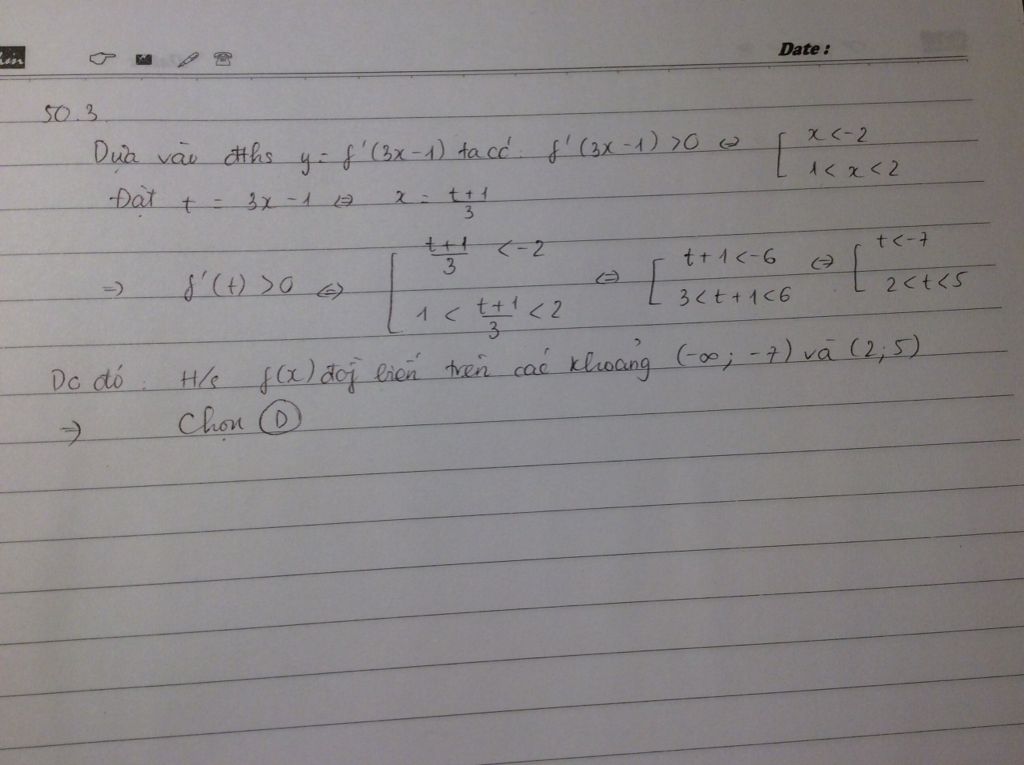 Date :
50.3
Dựa vào đths y = f'(3x-1) ta có: f'(3x-1) >0 ⇔ [ x <-2
1< x <2
Đặt t = 3x-1 ⇔ x = t+1/3
⇒ f'(t) >0 ⇔ [ t+1/3 <-2 ⇔ [ t+1<-6 ⇔ [ t<-7
1 < t+1/3 < 2 3<t+1<6 2<t<5
Do đó : H/s f(x) đoz̃ biến trên các khoảng (-∞; -7) và (2;5)
⇒ Chọn D